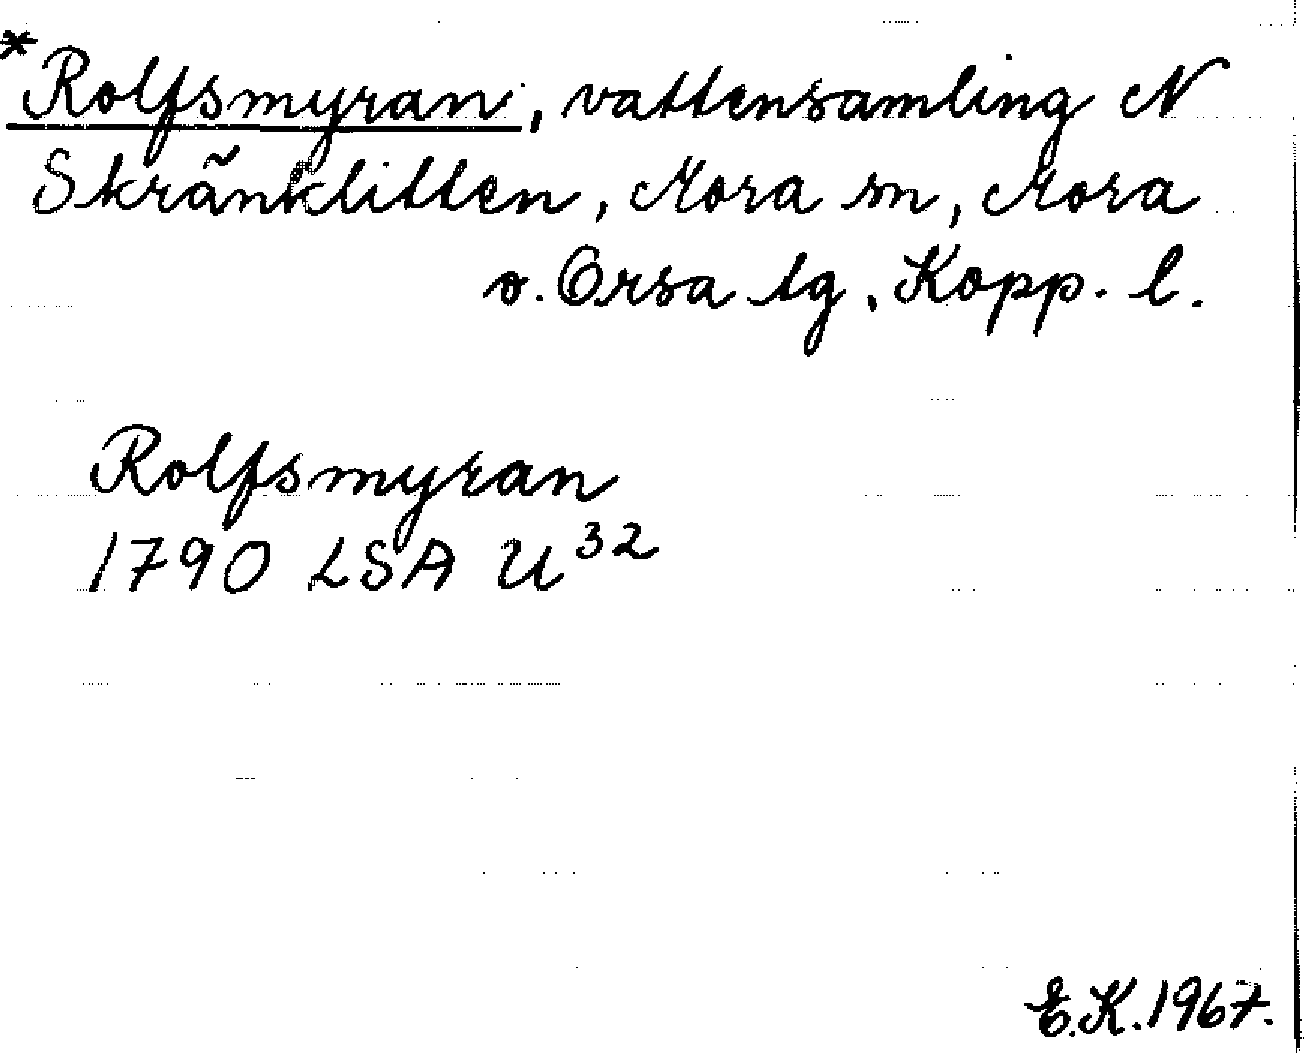 *Rolfsmyran, vattensamling N
Skränklitten, Mora sn, Mora
o. Orsa tg, Kopp. l.
Rolfsmyran
1790 LSA U³²
E.K. 1967.